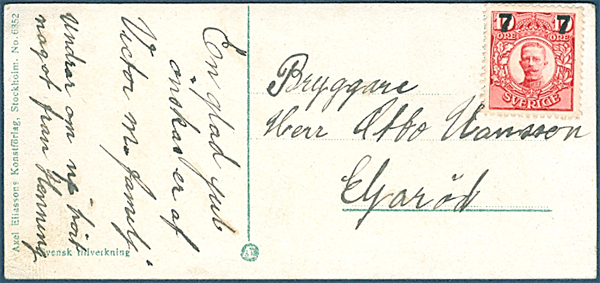 Axel Eliassons Konstförlag, Stockholm. No. 6352
Svensk tillverkning
En glad jul
önskas er af
Victor m. familj
Undrar om ni hört
något från Henning
7 7
ÖRE ÖRE
SVERIGE
Bryggare
Herr Otto Hansson